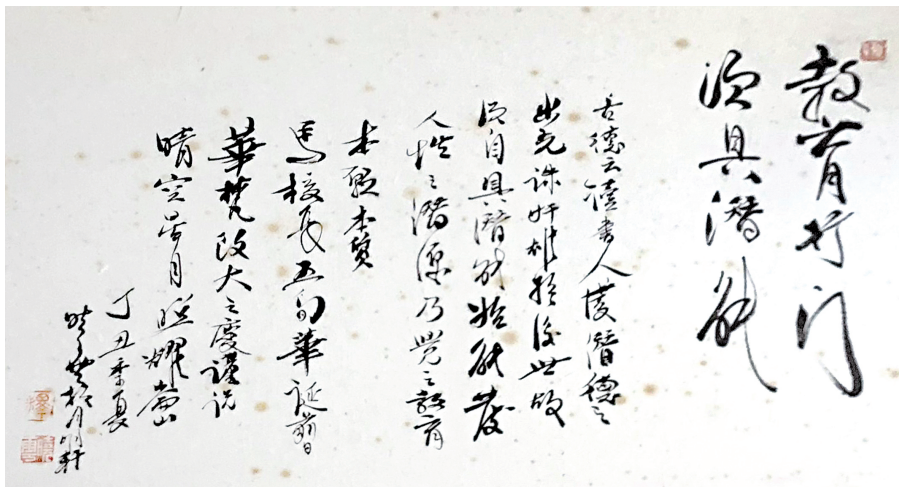 教育行門
須具潛能
古德云讀書人發潛德之
幽光誅奸雄於後世故
須自具潛能始能發
人性之潛源乃覺之教育
本懷本質
馬校長五旬華誕
華梵改大之慶謹祝
晴空皓月照耀崙山
丁丑季夏
曉雲於月明軒